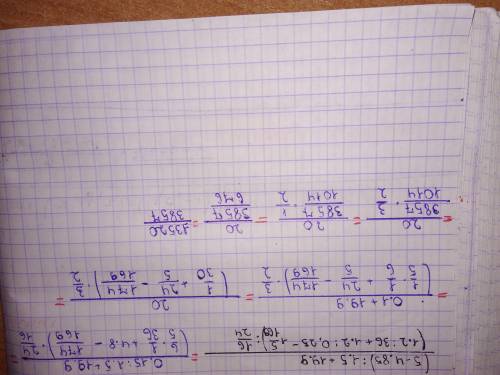 \frac{(5-4.85):1.5+19.9}{(1.2:36+1.2:0.25-1\frac{5}{169}):\frac{16}{24}} = \frac{0.15:1.5+19.9}{(\frac{6}{5}\cdot\frac{1}{36}+4.8-\frac{174}{169})\cdot\frac{24}{16}} =
= \frac{0.1+19.9}{(\frac{1}{5}\cdot\frac{1}{6}+\frac{24}{5}-\frac{174}{169})\cdot\frac{3}{2}} = \frac{20}{(\frac{1}{30}+\frac{24}{5}-\frac{174}{169})\cdot\frac{3}{2}} =
= \frac{20}{\frac{3857}{1014}\cdot\frac{3}{2}} = \frac{20}{\frac{3857}{1014}\cdot\frac{1}{2}} = \frac{20}{\frac{3857}{676}} = \frac{13520}{3857}